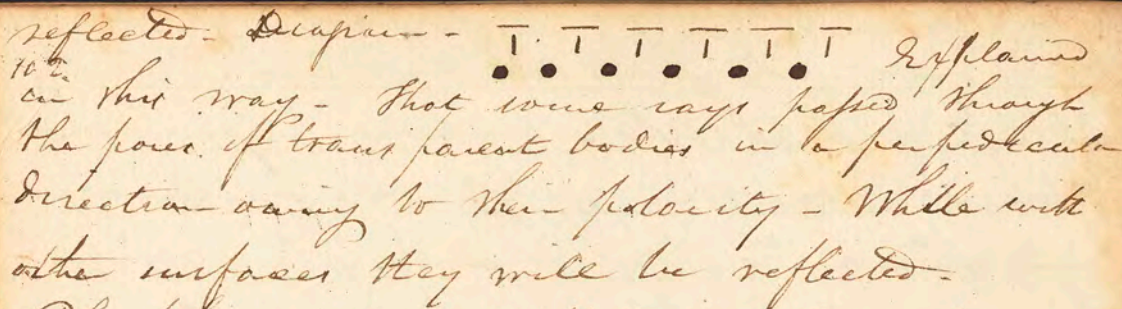 reflected - Diagram - Explained
in this way - that some rays passed through
the pores of transparent bodies in a perpendicular
direction owing to their polarity - While with
other surfaces they will be reflected -